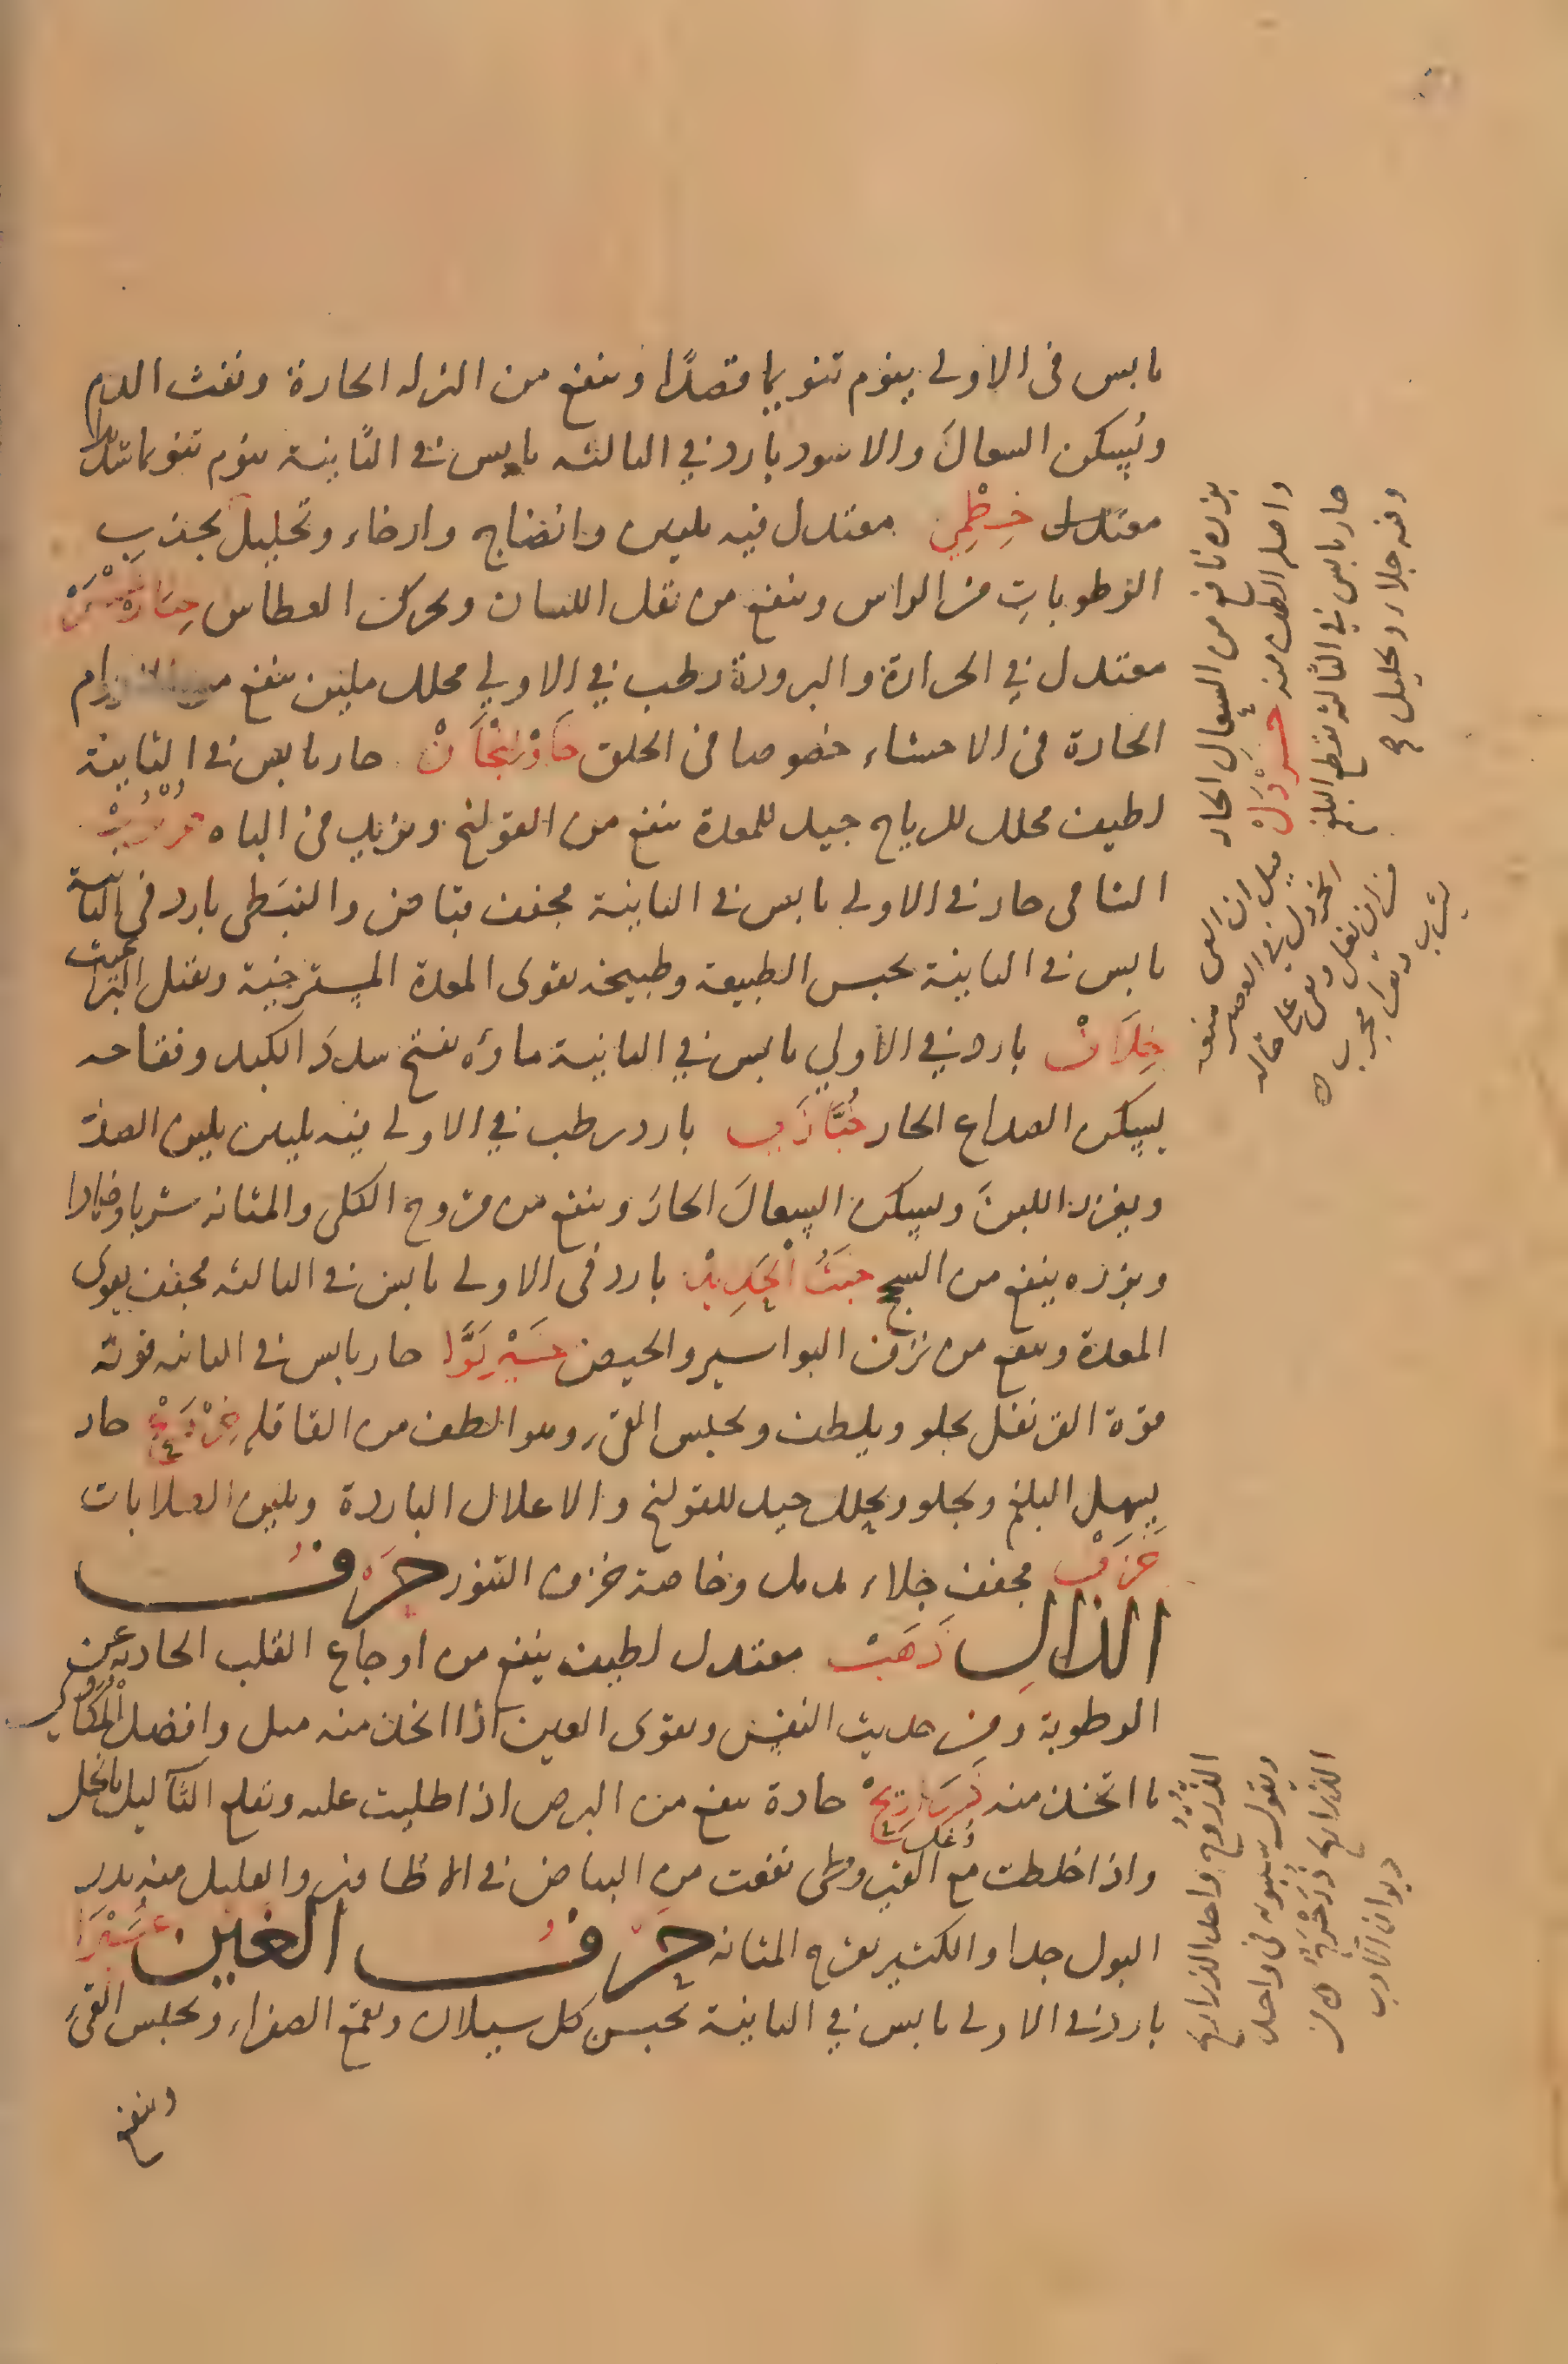 يابس في الاولى ينوم تنويما قصدًا وينفع من النزله الحارة ونفث الدم
ويُسكن السعالَ والاسود بارد في الثالثه يابس في الثانية ينوم تنويما
معتدل خِطْمِي معتدل فيه تليين وانضاج وارخاء وتحليل يجذب
الرطوباتِ من الراس وينفع من ثقل اللسان ويحرك العطاس خِيَارشَنْبَرْ
معتدل في الحرارة والبرودة رطب في الاولى محلل ملين ينفع من الاورام
الحارة في الاحشاء خصوصا في الحلق خَاوْلِنْجَانْ حار يابس في الثانية
لطيف محلل للرياح جيد للمعدة ينفع من القولنج ويزيد في الباه خُرْنُوبْ
الشامي حار في الاولى يابس في الثانية مجفف قابض والنبَطي بارد في الثانية
يابس في الثانية يحبس الطبيعة وطبيخه يقوى المعدة المسترخية ويقتل البراغيث
خِلَافْ بارد في الاولي يابس في الثانية ماؤه يفتح سددَ الكبد وفقاحه
يسكن الصداع الحار خُبَّازَي بارد رطب في الاولى فيه تليين يلين الصدر
ويغزر اللبنَ ويسكن السعالَ الحارَ وينفع من قروح الكلى والمثانه شربا وضمادا
وبزره ينفع من السحج خَبَثُ الْحَدِيدْ بارد في الاولى يابس في الثالثه مجفف يقوى
المعدة وينفع من نزف البواسير والحيض خَيْرِبَوَّا حار يابس في الثانيه قوته
قوة القرنفل يجلو ويلطف ويحبس القيء وهو الطف من القاقله خِرْوَعْ حار
يسهل البلغم ويجلو ويحلل جيد للقولنج والاعلال الباردة ويلين الصلابات
خَزَفْ مجفف جلاء يدمل وخاصة خزف التنور حَرْفُ
الذالِ ذَهَبْ معتدل لطيف ينفع من اوجاع القلب الحادثه عن
الرطوبة ومن حديث النفس ويقوى العين اذا اتخذ منه ميل وافضل المكاوي
ما اتخذ منه ذَرَارِيحْ حادة ينفع من البرص اذا طليت عليه وتقلع الثآليل بالخل
واذا خلطت مع القيروطى نفعت من البياض في الاظافير والقليل منه يدر
البول جدا والكثير يقرح المثانه حَرْفُ الغين غُبَيْرَا
بارد في الاولى يابس في الثانية يحبس كل سيلان ويقمع الصفراء ويحبس القيء
وينفع
بزره نافع من السعال الحار
واصله الطف منه خَرْدَلْ
حار يابس في الثالثة يقطع البلغم
وفيه جلاء وتحليل
الذُّرُّوح واحد الذراريح
ويقول سيبويه في واحد
الذراريح ذُرَحْرَح من
ديوان الأدب